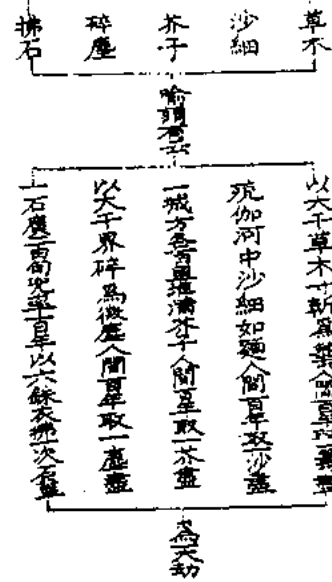 草木
沙細
芥子
碎塵
拂石
喻云
以大千草木寸斬為籌人間百年取一籌盡
殑伽河中沙細如麵人間百年取一沙盡
一城方各百里堆滿芥子人間百年取一芥盡
以大千界碎為微塵人間百年取一塵盡
一石廣由旬兜率百年以六銖衣拂一次石盡
為一大劫